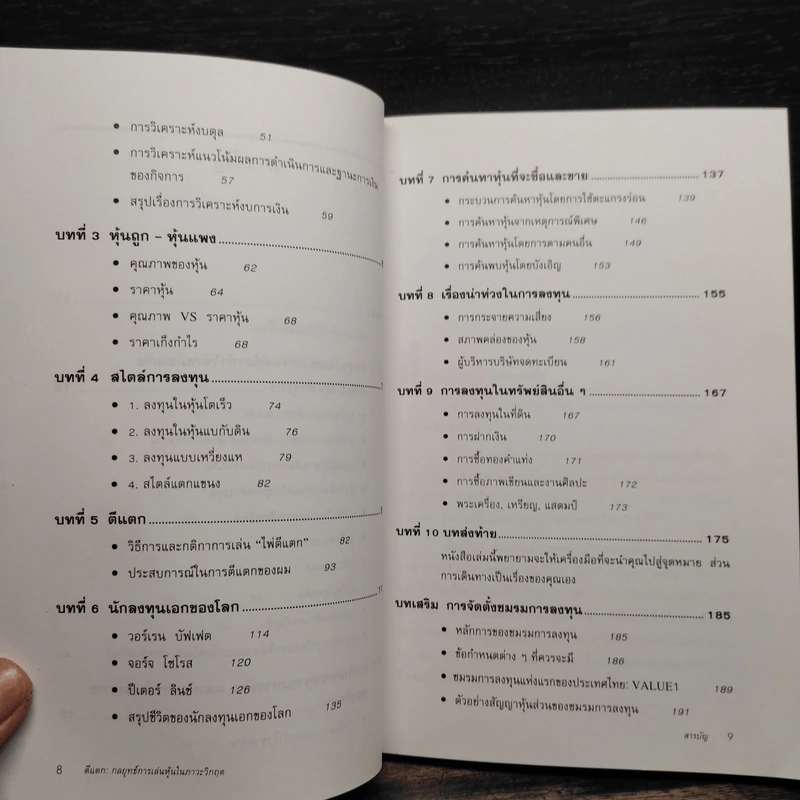 • การวิเคราะห์งบดุล 51
• การวิเคราะห์แนวโน้มผลการดำเนินการและฐานะการเงิน
ของกิจการ 57
• สรุปเรื่องการวิเคราะห์งบการเงิน 59
บทที่ 3 หุ้นถูก – หุ้นแพง
• คุณภาพของหุ้น 62
• ราคาหุ้น 64
• คุณภาพ VS ราคาหุ้น 68
• ราคาเก็งกำไร 68
บทที่ 4 สไตล์การลงทุน
• 1. ลงทุนในหุ้นโตเร็ว 74
• 2. ลงทุนในหุ้นแบกับดิน 76
• 3. ลงทุนแบบเหวี่ยงแห 79
• 4. สไตล์แตกแขนง 82
บทที่ 5 ตีแตก
• วิธีการและกติกาการเล่น “ไพ่ตีแตก” 82
• ประสบการณ์ในการตีแตกของผม 93
บทที่ 6 นักลงทุนเอกของโลก
• วอร์เรน บัฟเฟต 114
• จอร์จ โซโรส 120
• ปีเตอร์ ลินช์ 126
• สรุปชีวิตของนักลงทุนเอกของโลก 135
8 ตีแตก: กลยุทธ์การเล่นหุ้นในภาวะวิกฤต
บทที่ 7 การค้นหาหุ้นที่จะซื้อและขาย 137
• กระบวนการค้นหาหุ้นโดยการใช้ตะแกรงร่อน 139
• การค้นหาหุ้นจากเหตุการณ์พิเศษ 146
• การค้นหาหุ้นโดยการตามคนอื่น 149
• การค้นพบหุ้นโดยบังเอิญ 153
บทที่ 8 เรื่องน่าห่วงในการลงทุน 155
• การกระจายความเสี่ยง 156
• สภาพคล่องของหุ้น 158
• ผู้บริหารบริษัทจดทะเบียน 161
บทที่ 9 การลงทุนในทรัพย์สินอื่น ๆ 167
• การลงทุนในที่ดิน 167
• การฝากเงิน 170
• การซื้อทองคำแท่ง 171
• การซื้อภาพเขียนและงานศิลปะ 172
• พระเครื่อง, เหรียญ, แสตมป์ 173
บทที่ 10 บทส่งท้าย 175
หนังสือเล่มนี้พยายามจะให้เครื่องมือที่จะนำคุณไปสู่จุดหมาย ส่วน
การเดินทางเป็นเรื่องของคุณเอง
บทเสริม การจัดตั้งชมรมการลงทุน 185
• หลักการของชมรมการลงทุน 185
• ข้อกำหนดต่าง ๆ ที่ควรจะมี 186
• ชมรมการลงทุนแห่งแรกของประเทศไทย: VALUE1 189
• ตัวอย่างสัญญาหุ้นส่วนของชมรมการลงทุน 191
สารบัญ 9